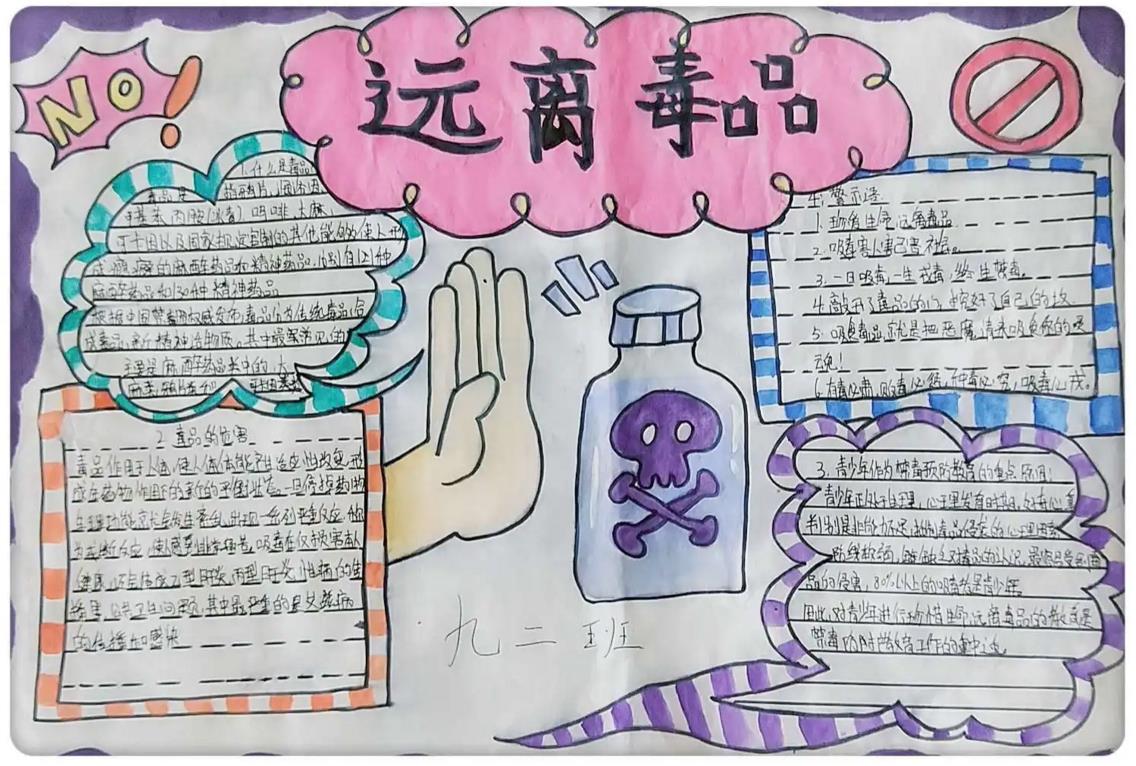 NO!
远离毒品
1.什么是毒品
毒品是 指鸦片、海洛因
甲基苯丙胺(冰毒)、吗啡、大麻、
可卡因以及国家规定管制的其他能够使人形
成瘾癖的麻醉药品和精神药品,共有121种
麻醉药品和130种精神药品
根据中国禁毒网权威发布,毒品分为传统毒品、合
成毒品、新精神活物质。其中最常见的
主要是麻醉药品类中的 大
麻类、鸦片类和
2.毒品的危害
毒品作用于人体,使人体体能产生适应性改变,形
成在药物作用下的新的平衡状态。一旦停掉药物
生理功能就会发生紊乱,出现一系列严重反应,称
为戒断反应,使人感到非常痛苦。吸毒在仅损害本人
健康,还呈传成乙型肝炎、丙型肝炎、性病的
公共卫生问题,其中最严重的是艾兹病
的传播和感染
九二班
4.警示语
1.珍惜生命,远离毒品
2.吸毒害人害己害社会。
3.一日吸毒,一生戒毒,终生禁毒。
4.敲开了毒品的门,挖好了自己的坟
5.吸食毒品,就是把恶魔请来吸食你的灵
魂!
6.有毒必肃,贩毒必惩,种毒必究,吸毒必戒。
3.青少年作为禁毒预防教育的重点原因!
青少年正处于生理、心理发育时期,好奇心重
判别是非能力不足,抵制毒品侵袭的心理
防线较弱,缺乏对毒品的认识,最容易受到毒
品的侵害,80%以上的吸毒者是青少年
因此,对青少年进行珍惜生命、远离毒品的教育是
禁毒预防教育工作的重中之